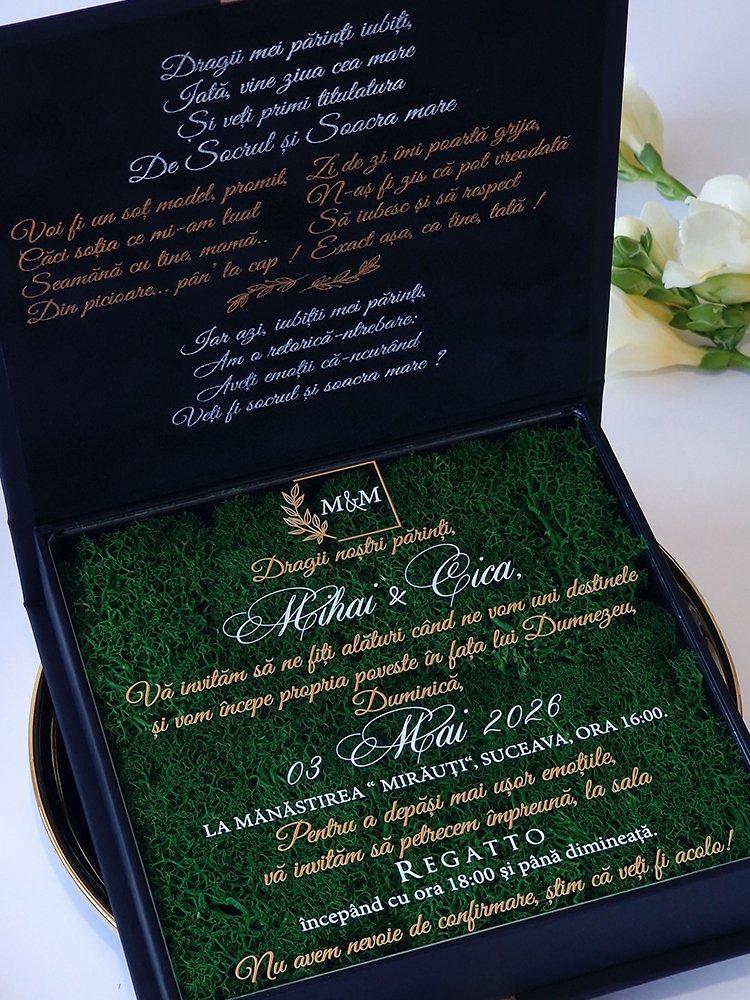 Dragii mei părinți iubiți,
Iată, vine ziua cea mare
Și veți primi titulatura
De Socrul și Soacra mare
Voi fi un soț model, promit,
Căci soția ce mi-am luat
Seamănă cu tine, mamă..
Din picioare... pân' la cap !
Zi de zi îmi poartă grija,
N-aș fi zis că pot vreodată
Să iubesc și să respect
Exact așa, ca tine, tată !
Iar azi, iubiții mei părinți,
Am o retorică-ntrebare:
Aveți emoții că-ncurând
Veți fi socrul și soacra mare ?
M&M
Dragii noștri părinți,
Mihai & Cica,
Vă invităm să ne fiți alături când ne vom uni destinele
și vom începe propria poveste în fața lui Dumnezeu,
Duminică,
03 Mai 2026
LA MĂNĂSTIREA “ MIRĂUȚI“, SUCEAVA, ORA 16:00.
Pentru a depăși mai ușor emoțiile,
vă invităm să petrecem împreună, la sala
REGATTO
începând cu ora 18:00 și până dimineață.
Nu avem nevoie de confirmare, știm că veți fi acolo!